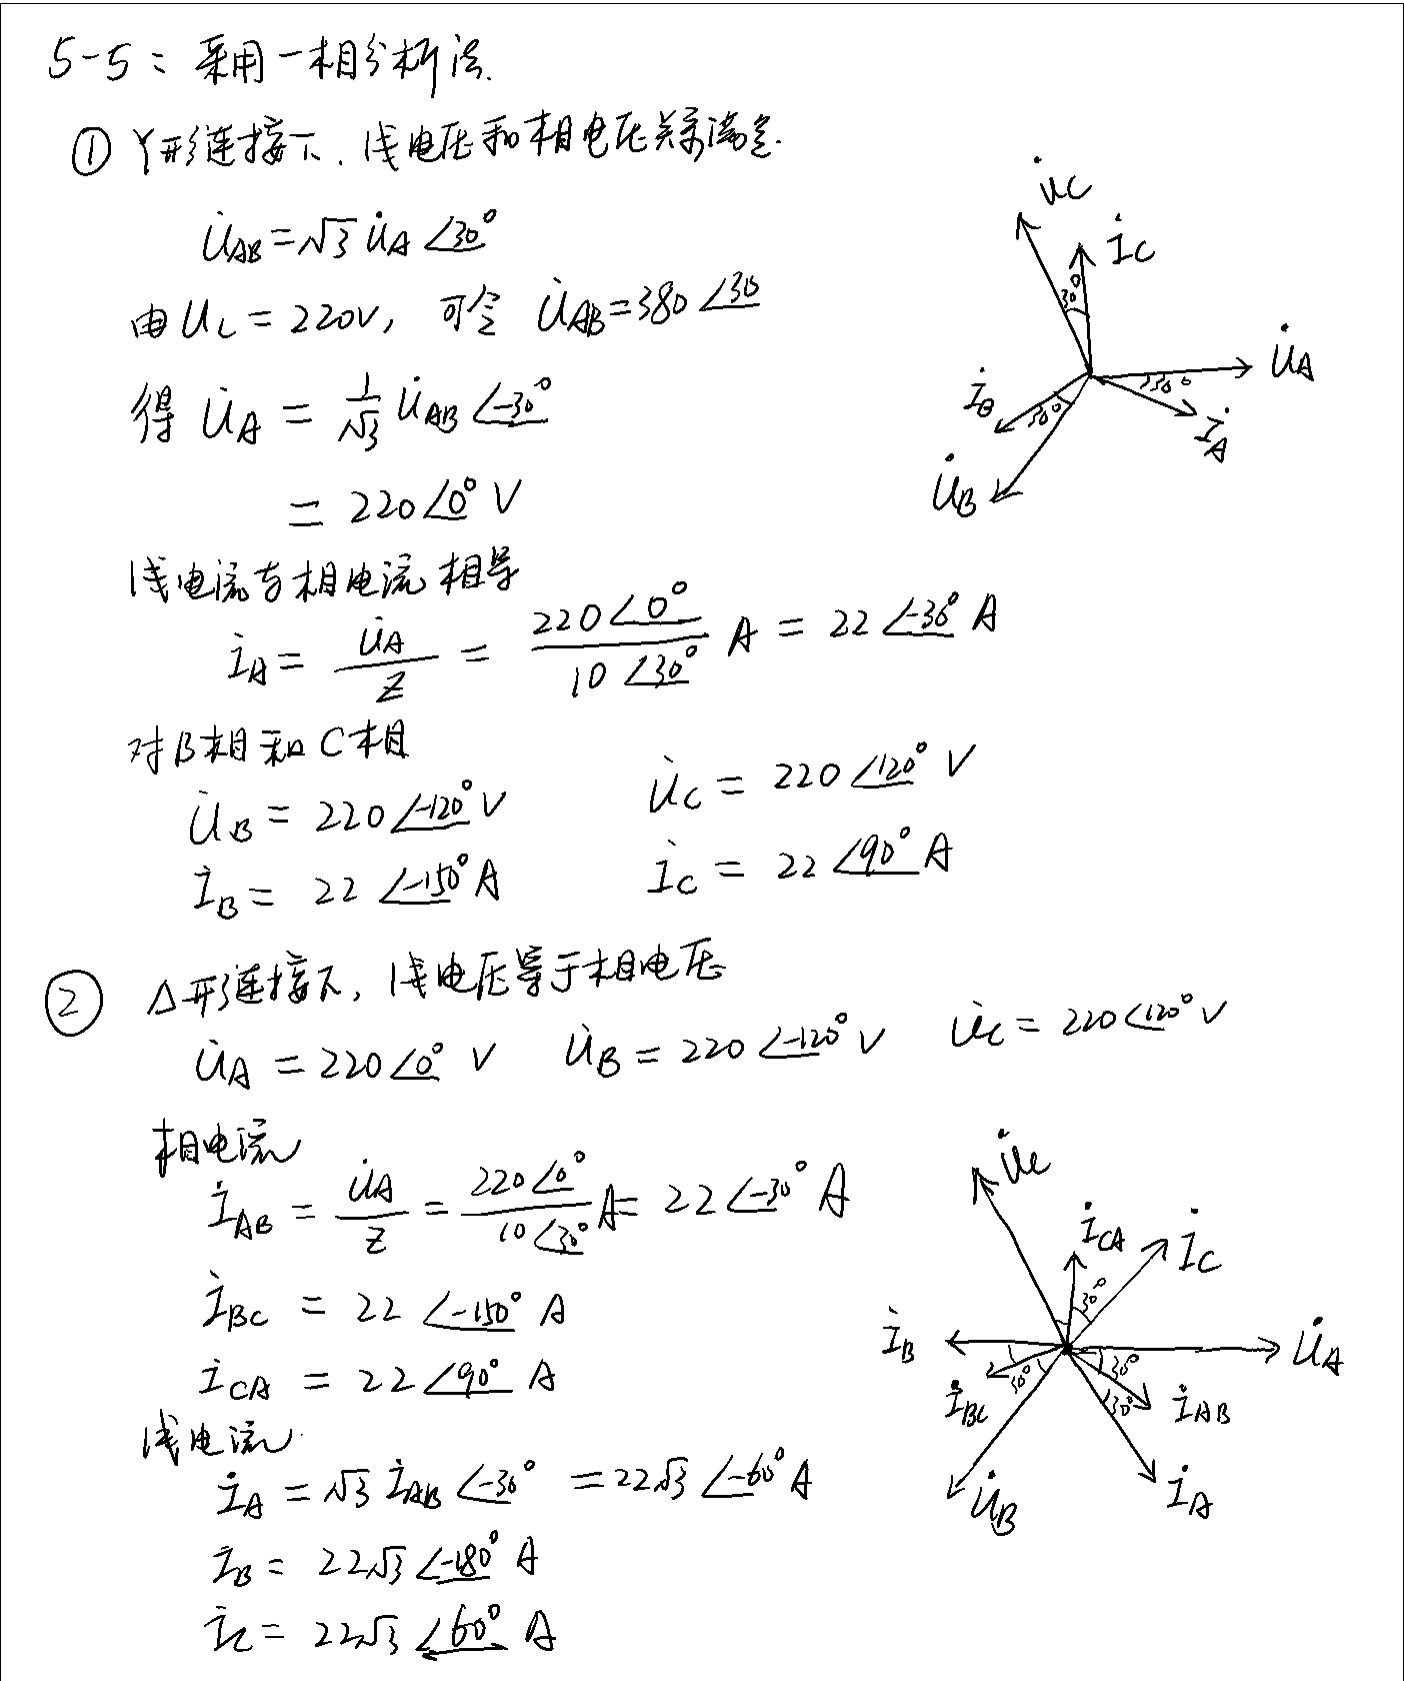 5-5：采用一相分析法.
① Y形连接下，线电压和相电压关系满足.
U̇AB=√3 U̇A∠30°
由UL=220V，可令 U̇AB=380∠30
得 U̇A = 1/√3 U̇AB∠-30°
= 220∠0° V
线电流与相电流相等
İA= U̇A/Z = 220∠0°/10∠30° A = 22∠-30° A
对B相和C相
U̇B= 220∠-120° V U̇C = 220∠120° V
İB= 22∠-150° A İC = 22∠90° A
② △形连接下，线电压等于相电压
U̇A = 220∠0° V U̇B = 220∠-120° V U̇C = 220∠120° V
相电流
İAB = U̇A/Z = 220∠0°/10∠30° A= 22∠-30° A
İBC = 22∠-150° A
İCA = 22∠90° A
线电流
İA = √3 İAB∠-30° =22√3∠-60° A
İB= 22√3∠-180° A
İC= 22√3∠60° A
U̇C
İC
30°
U̇A
30°
İB
30°
İA
U̇B
U̇C
İCA
İC
30°
İB
U̇A
30°
30°
İBC
30°
İAB
U̇B
İA